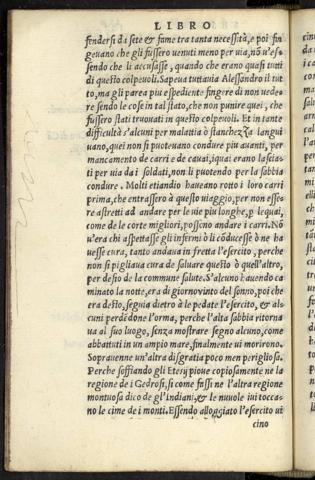 LIBRO
fendersi da sete & fame tra tanta necessità, e poi fin
geuano che gli fussero venuti meno per via, nō v'es-
sendo che li accusasse, quando che erano quasi tutti
di questo colpeuoli. Sapeua tuttavia Alessandro il tut
to, ma gli parea piu espediente fingere di non vede-
re sendo le cose in tal stato, che non punire quei, che
fussero stati trouati in questo colpeuoli. Et in tante
difficultà s'alcuni per malattia ò stanchezza langui
uano, quei non si puoteuano condure piu auanti, per
mancamento di carri e de cauai, iquai erano lascia-
ti per via da i soldati, non li puotendo per la sabbia
condure. Molti etiandio haueano rotto i loro carri
prima, che entrassero à questo viaggio, per non esse-
re astretti ad andare per le vie piu longhe, p lequai,
come de le corte migliori, possono andare i carri. Nō
v'era chi aspettasse gli infermi ò li cōducesse ò ne ha
uesse cura, tanto andaua in fretta l'esercito, perche
non si pigliaua cura de saluare questo ò quell'altro,
per desio de la commune salute. S'alcuno hauendo ca
minato la notte, era di giorno vinto del sonno, poi che
era desto, seguia dietro à le pedate l'esercito, & al-
cuni perdēdone l'orma, perche l'alta sabbia ritorna
ua al suo luogo, senza mostrare segno alcuno, come
abbattuti in un ampio mare, finalmente ui morirono.
Soprauenne un'altra disgratia poco men perigliosa.
Perche soffiando gli Etesij pioue copiosamente ne la
regione de i Gedrosi, si come fassi ne l'altra regione
montuosa dico de gl'Indiani, & le nuuole iui tocca-
no le cime de i monti. Essendo alloggiato l'esercito ui
cino